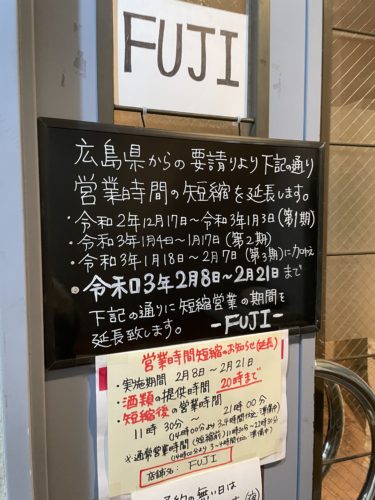 FUJI
広島県からの要請より下記の通り
営業時間の短縮を延長します。
・令和2年12月17日～令和3年1月3日(第1期)
・令和3年1月4日～1月17日(第2期)
・令和3年1月18日～2月7日(第3期)に加え
・令和3年2月8日～2月21日まで
下記の通りに短縮営業の期間を
延長致します。 -FUJI-
営業時間短縮のお知らせ(延長)
・実施期間 2月8日～2月21日
・酒類の提供時間 20時まで
・短縮後の営業時間
11時30分～21時00分
(14時00分より3、4時間位 準備中)
※通常営業時間(短縮前)11時30分～22時30分
(14時00分より3～4時間位 準備中)
店舗名: FUJI
予約の無い日は